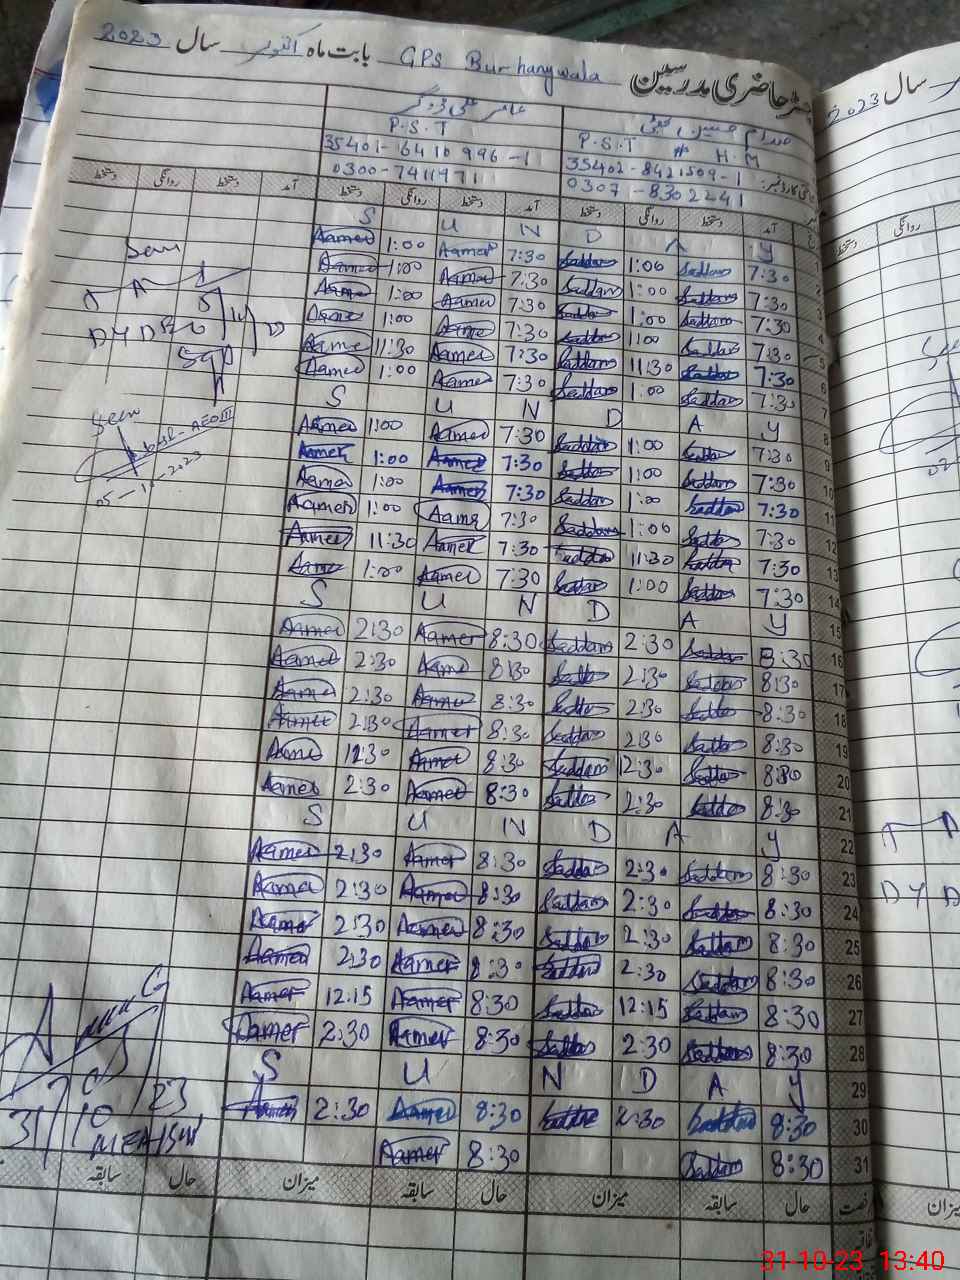 رجسٹر حاضری مدرسین GPS Burhanywala بابت ماہ اکتوبر سال 2023
صدام حسین
P.S.T / H.M
35402-8421509-1
0307-8302241
P.S.T
35401-6410996-1
0300-7411971
آمد دستخط روانگی دستخط آمد دستخط روانگی دستخط آمد دستخط روانگی دستخط
1 S U N D A Y
2 7:30 Saddam 1:00 Saddam 7:30 Aamer 1:00 Aamer
3 7:30 Saddam 1:00 Saddam 7:30 Aamer 1:00 Aamer
4 7:30 Saddam 1:00 Saddam 7:30 Aamer 1:00 Aamer
5 7:30 Saddam 1:00 Saddam 7:30 Aamer 1:00 Aamer
6 7:30 Saddam 11:30 Saddam 7:30 Aamer 11:30 Aamer
7 7:30 Saddam 1:00 Saddam 7:30 Aamer 1:00 Aamer
8 S U N D A Y
9 7:30 Saddam 1:00 Saddam 7:30 Aamer 1:00 Aamer
10 7:30 Saddam 1:00 Saddam 7:30 Aamer 1:00 Aamer
11 7:30 Saddam 1:00 Saddam 7:30 Aamer 1:00 Aamer
12 7:30 Saddam 1:00 Saddam 7:30 Aamer 1:00 Aamer
13 7:30 Saddam 11:30 Saddam 7:30 Aamer 11:30 Aamer
14 7:30 Saddam 1:00 Saddam 7:30 Aamer 1:00 Aamer
15 S U N D A Y
16 8:30 Saddam 2:30 Saddam 8:30 Aamer 2:30 Aamer
17 8:30 Saddam 2:30 Saddam 8:30 Aamer 2:30 Aamer
18 8:30 Saddam 2:30 Saddam 8:30 Aamer 2:30 Aamer
19 8:30 Saddam 2:30 Saddam 8:30 Aamer 2:30 Aamer
20 8:30 Saddam 12:30 Saddam 8:30 Aamer 12:30 Aamer
21 8:30 Saddam 2:30 Saddam 8:30 Aamer 2:30 Aamer
22 S U N D A Y
23 8:30 Saddam 2:30 Saddam 8:30 Aamer 2:30 Aamer
24 8:30 Saddam 2:30 Saddam 8:30 Aamer 2:30 Aamer
25 8:30 Saddam 2:30 Saddam 8:30 Aamer 2:30 Aamer
26 8:30 Saddam 2:30 Saddam 8:30 Aamer 2:30 Aamer
27 8:30 Saddam 12:15 Saddam 8:30 Aamer 12:15 Aamer
28 8:30 Saddam 2:30 Saddam 8:30 Aamer 2:30 Aamer
29 S U N D A Y
30 8:30 Saddam 2:30 Saddam 8:30 Aamer 2:30 Aamer
31 8:30 Saddam 8:30 Aamer
حال سابقہ میزان حال سابقہ میزان حال سابقہ
Seen
Seen
AEO
05-10-2023
31/10/23
سال 2023
روانگی دستخط
میزان
31-10-23 13:40